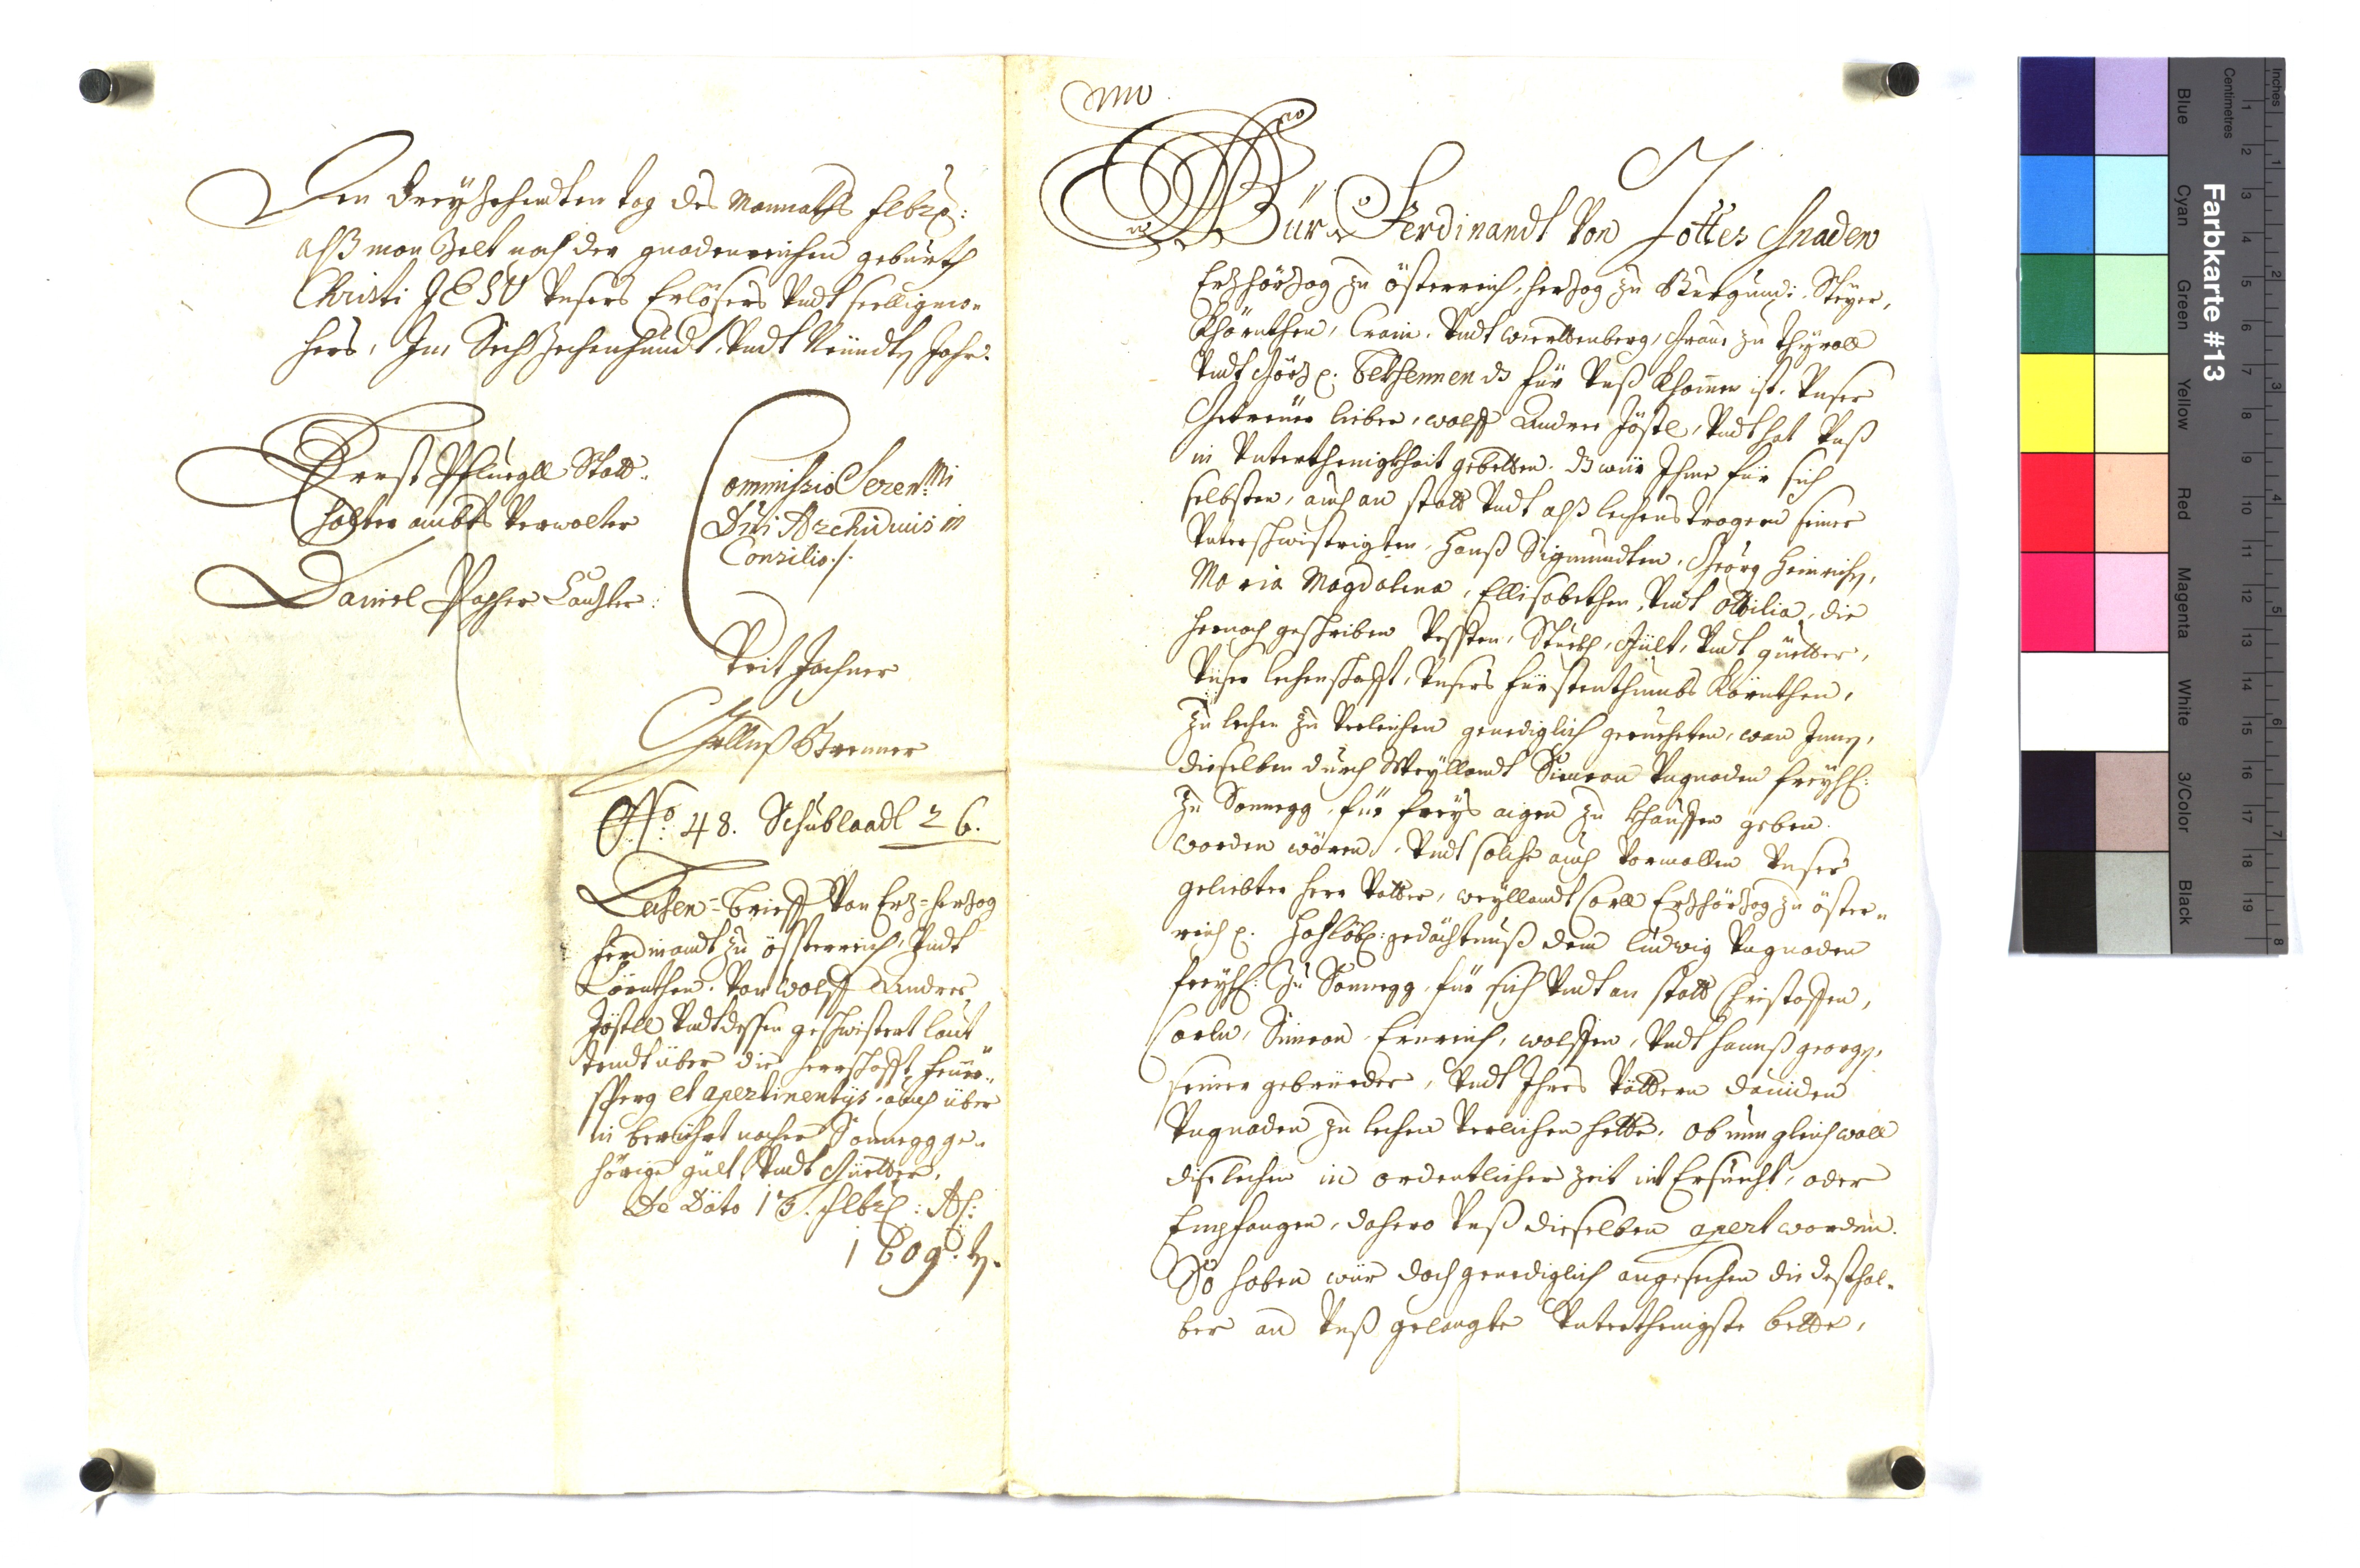 Den dreyzehendten tag des Monnaths Febr:
alß man Zelt nach der gnadenreichen geburth
Christi JESU Unsers Erlösers Undt seeligma-
hers, Im Sechzechenhundt Undt Neündten Jahr.
Ernst Pfluegll Statt-
halter ambts Verwalter
Daniel Cantzler:
Commissio Seren:mi
Dni Archiducis in
Consilio ./.
Veit Jochner
Brenner
No: 48. Schublaadl 26.
Lechen-brieff Von Erz-herzog
Ferdinandt zu össterreich, Undt
Körnthen. Von Wolff Andree
Jöstll Undt dessen geschwistert laut
tendt über die herrschafft Feuer-
sperg et apertinentijs, auch über
in berührt nacher Sonnegg ge-
hörige gült Undt Güetter,
De Dato 13. Febr: Ao:
1609.
Wür Ferdinandt Von Gottes Gnaden
Erzhörzog zu österreich, herzog zu Burgundi, Steyer,
Khärnthen, Crain, Undt Wierttenberg, Graue zu Thyroll
Undt Görz p. bekhennen dz für Unß Khomen ist, Unser
Getreuer lieber, Wolff Andree Jöstl, Undt hat Unß
in Unterthenigkheit gebetten, dz wür Ihme für sich
selbsten, auch an statt Undt alß lechenstragern seiner
Unterschwistrigten, Hanß Sigmundten, Georg Heinrichen,
Maria Magdalena, Ellisabethen, Undt Ottilia, die
hernach geschriben Vessten, Stuckh, Gült, Undt güetter,
Unser lechenschafft, Unsers Fürstenthumbs Kärnthen,
zu lechen zu Verleichen genediglich geruecheten, wan Jnnen,
dieselben durch Weyllandt Simeon Ungnaden freyh:
zu Sonnegg, für freys aigen zu khauffen geben
worden wären, Undt solche auch Vormallen Unser
geliebter Herr Vatter, weyllandt Carll Erzhörzog zu öster-
reich p. Hochlöb: gedächtnuß dem Ludwig Ungnaden
freyh: zu Sonnegg, für sich Undt an statt Christoffen,
Carln, Simeon, Ernreich, Wolffen, Undt Hannß georgen,
seiner gebrüeder, Undt Ihres Vöttern Dauiden
Ungnaden zu lechen Verlichen hette, ob nun gleichwoll
dise lechen in ordentlicher Zeit nit Ersuecht, oder
Empfangen, dahero Unß dieselben apert worden.
So haben wür doch genediglich angesechen die desthal-
ber an Unß gelangte Unterthenigste bitte,